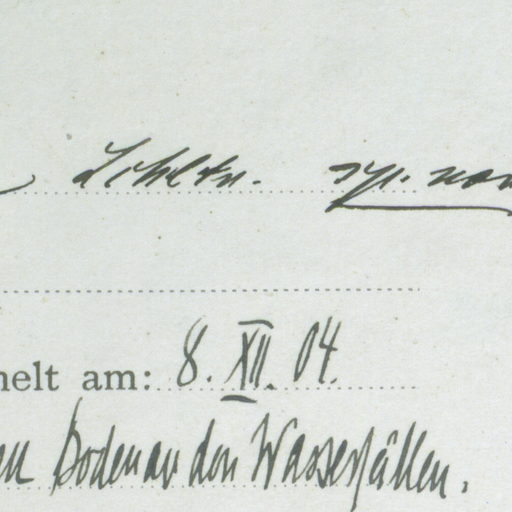 Schltr. sp. nov
melt am: 8. XII. 04.
en Boden an den Wasserfällen.